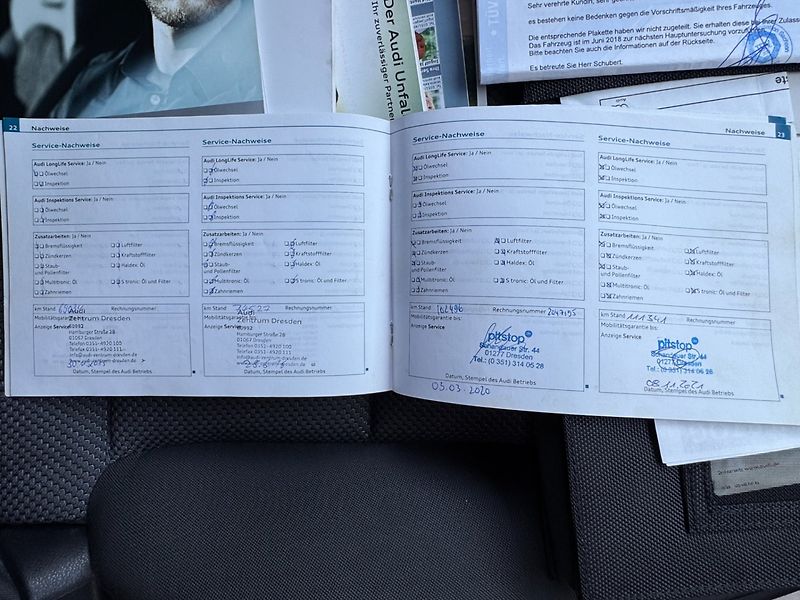 Der Audi Unfall
Ihr zuverlässiger Partner
TÜV
es bestehen keine Bedenken gegen die Vorschriftsmäßigkeit Ihres Fahrzeuges.
Die entsprechende Plakette haben wir nicht zugeteilt. Sie erhalten diese bei Ihrer Zulass
Das Fahrzeug ist im Juni 2018 zur nächsten Hauptuntersuchung vorzufü
Bitte beachten Sie auch die Informationen auf der Rückseite.
Es betreute Sie Herr Schubert.
22 Nachweise
Service-Nachweise
Audi LongLife Service: Ja / Nein
Ölwechsel
Inspektion
Audi Inspektions Service: Ja / Nein
Ölwechsel
Inspektion
Zusatzarbeiten: Ja / Nein
Bremsflüssigkeit Luftfilter
Zündkerzen Kraftstofffilter
Staub- Haldex: Öl
und Pollenfilter
Multitronic: Öl S tronic: Öl und Filter
Zahnriemen
km Stand Rechnungsnummer
Mobilitätsgarantie bis:
Anzeige Service
Audi
Zentrum Dresden
Hamburger Straße 28
01067 Dresden
Telefon 0351-4920 100
Telefax 0351-4920 111
Datum, Stempel des Audi Betriebs
Service-Nachweise
Audi LongLife Service: Ja / Nein
Ölwechsel
Inspektion
Audi Inspektions Service: Ja / Nein
Ölwechsel
Inspektion
Zusatzarbeiten: Ja / Nein
Bremsflüssigkeit Luftfilter
Zündkerzen Kraftstofffilter
Staub- Haldex: Öl
und Pollenfilter
Multitronic: Öl S tronic: Öl und Filter
Zahnriemen
km Stand Rechnungsnummer
Mobilitätsgarantie bis:
Anzeige Service
Audi
Zentrum Dresden
Hamburger Straße 28
01067 Dresden
Telefon 0351-4920 100
Telefax 0351-4920 111
Datum, Stempel des Audi Betriebs
Service-Nachweise
Audi LongLife Service: Ja / Nein
Ölwechsel
Inspektion
Audi Inspektions Service: Ja / Nein
Ölwechsel
Inspektion
Zusatzarbeiten: Ja / Nein
Bremsflüssigkeit Luftfilter
Zündkerzen Kraftstofffilter
Staub- Haldex: Öl
und Pollenfilter
Multitronic: Öl S tronic: Öl und Filter
Zahnriemen
km Stand 102496 Rechnungsnummer 2047195
Mobilitätsgarantie bis:
Anzeige Service
pitstop
Schandauer Str. 44
01277 Dresden
Tel.: (0 351) 314 05 28
Datum, Stempel des Audi Betriebs
05.03.2020
Nachweise 23
Service-Nachweise
Audi LongLife Service: Ja / Nein
Ölwechsel
Inspektion
Audi Inspektions Service: Ja / Nein
Ölwechsel
Inspektion
Zusatzarbeiten: Ja / Nein
Bremsflüssigkeit Luftfilter
Zündkerzen Kraftstofffilter
Staub- Haldex: Öl
und Pollenfilter
Multitronic: Öl S tronic: Öl und Filter
Zahnriemen
km Stand 111341 Rechnungsnummer
Mobilitätsgarantie bis:
Anzeige Service
pitstop
Schandauer Str. 44
01277 Dresden
Tel.: (0 351) 314 05 28
08.11.2021
Datum, Stempel des Audi Betriebs